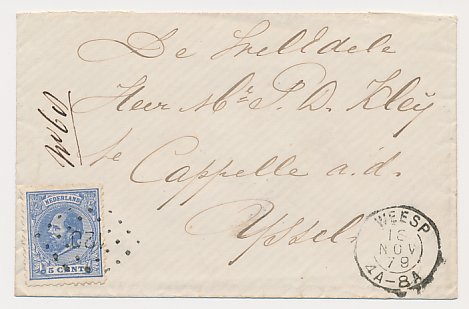 De WelEdele
Heer Mr. P. D. Kleÿ
te Cappelle a.d.
Yssel
NEDERLAND
5 CENT
WEESP
16
NOV
79
4A-8A